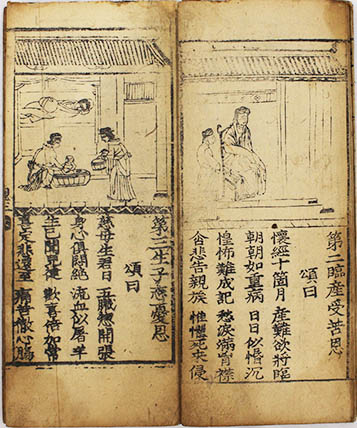 第二臨產受苦恩
頌曰
懷經十箇月 產難欲將臨
朝朝如重病 日日似惛沉
惶怖難成記 愁淚滿胷襟
含悲告親族 惟懼死來侵
第三生子忘憂恩
頌曰
慈母生君日 五臟惣開張
身心俱悶絕 流血似屠羊
生已聞兒健 歡喜倍加常
喜定悲還至 痛苦徹心腸